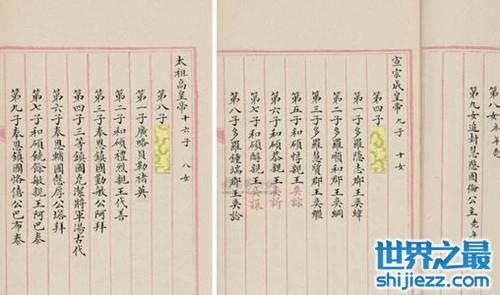 太祖高皇帝 十六子 八女
第八子
第一子廣略貝勒褚英
第二子和碩禮烈親王代善
第三子奉恩鎮國勤敏公阿拜
第四子三等鎮國克潔將軍湯古代
第六子奉恩輔國慤厚公塔拜
第七子和碩饒餘敏親王阿巴泰
第九子奉恩鎮國恪僖公巴布泰
第八女
第九女追封慧愍固倫公主
宣宗成皇帝 九子 十女
第四子
第一子多羅隱志郡王奕緯
第二子多羅順和郡王奕綱
第三子多羅慧質郡王奕繼
第五子和碩惇親王奕誴
第六子和碩恭親王奕訢
第七子和碩醇親王奕譞
第八子多羅鍾端郡王奕詥
世界之最
shijiezz.com